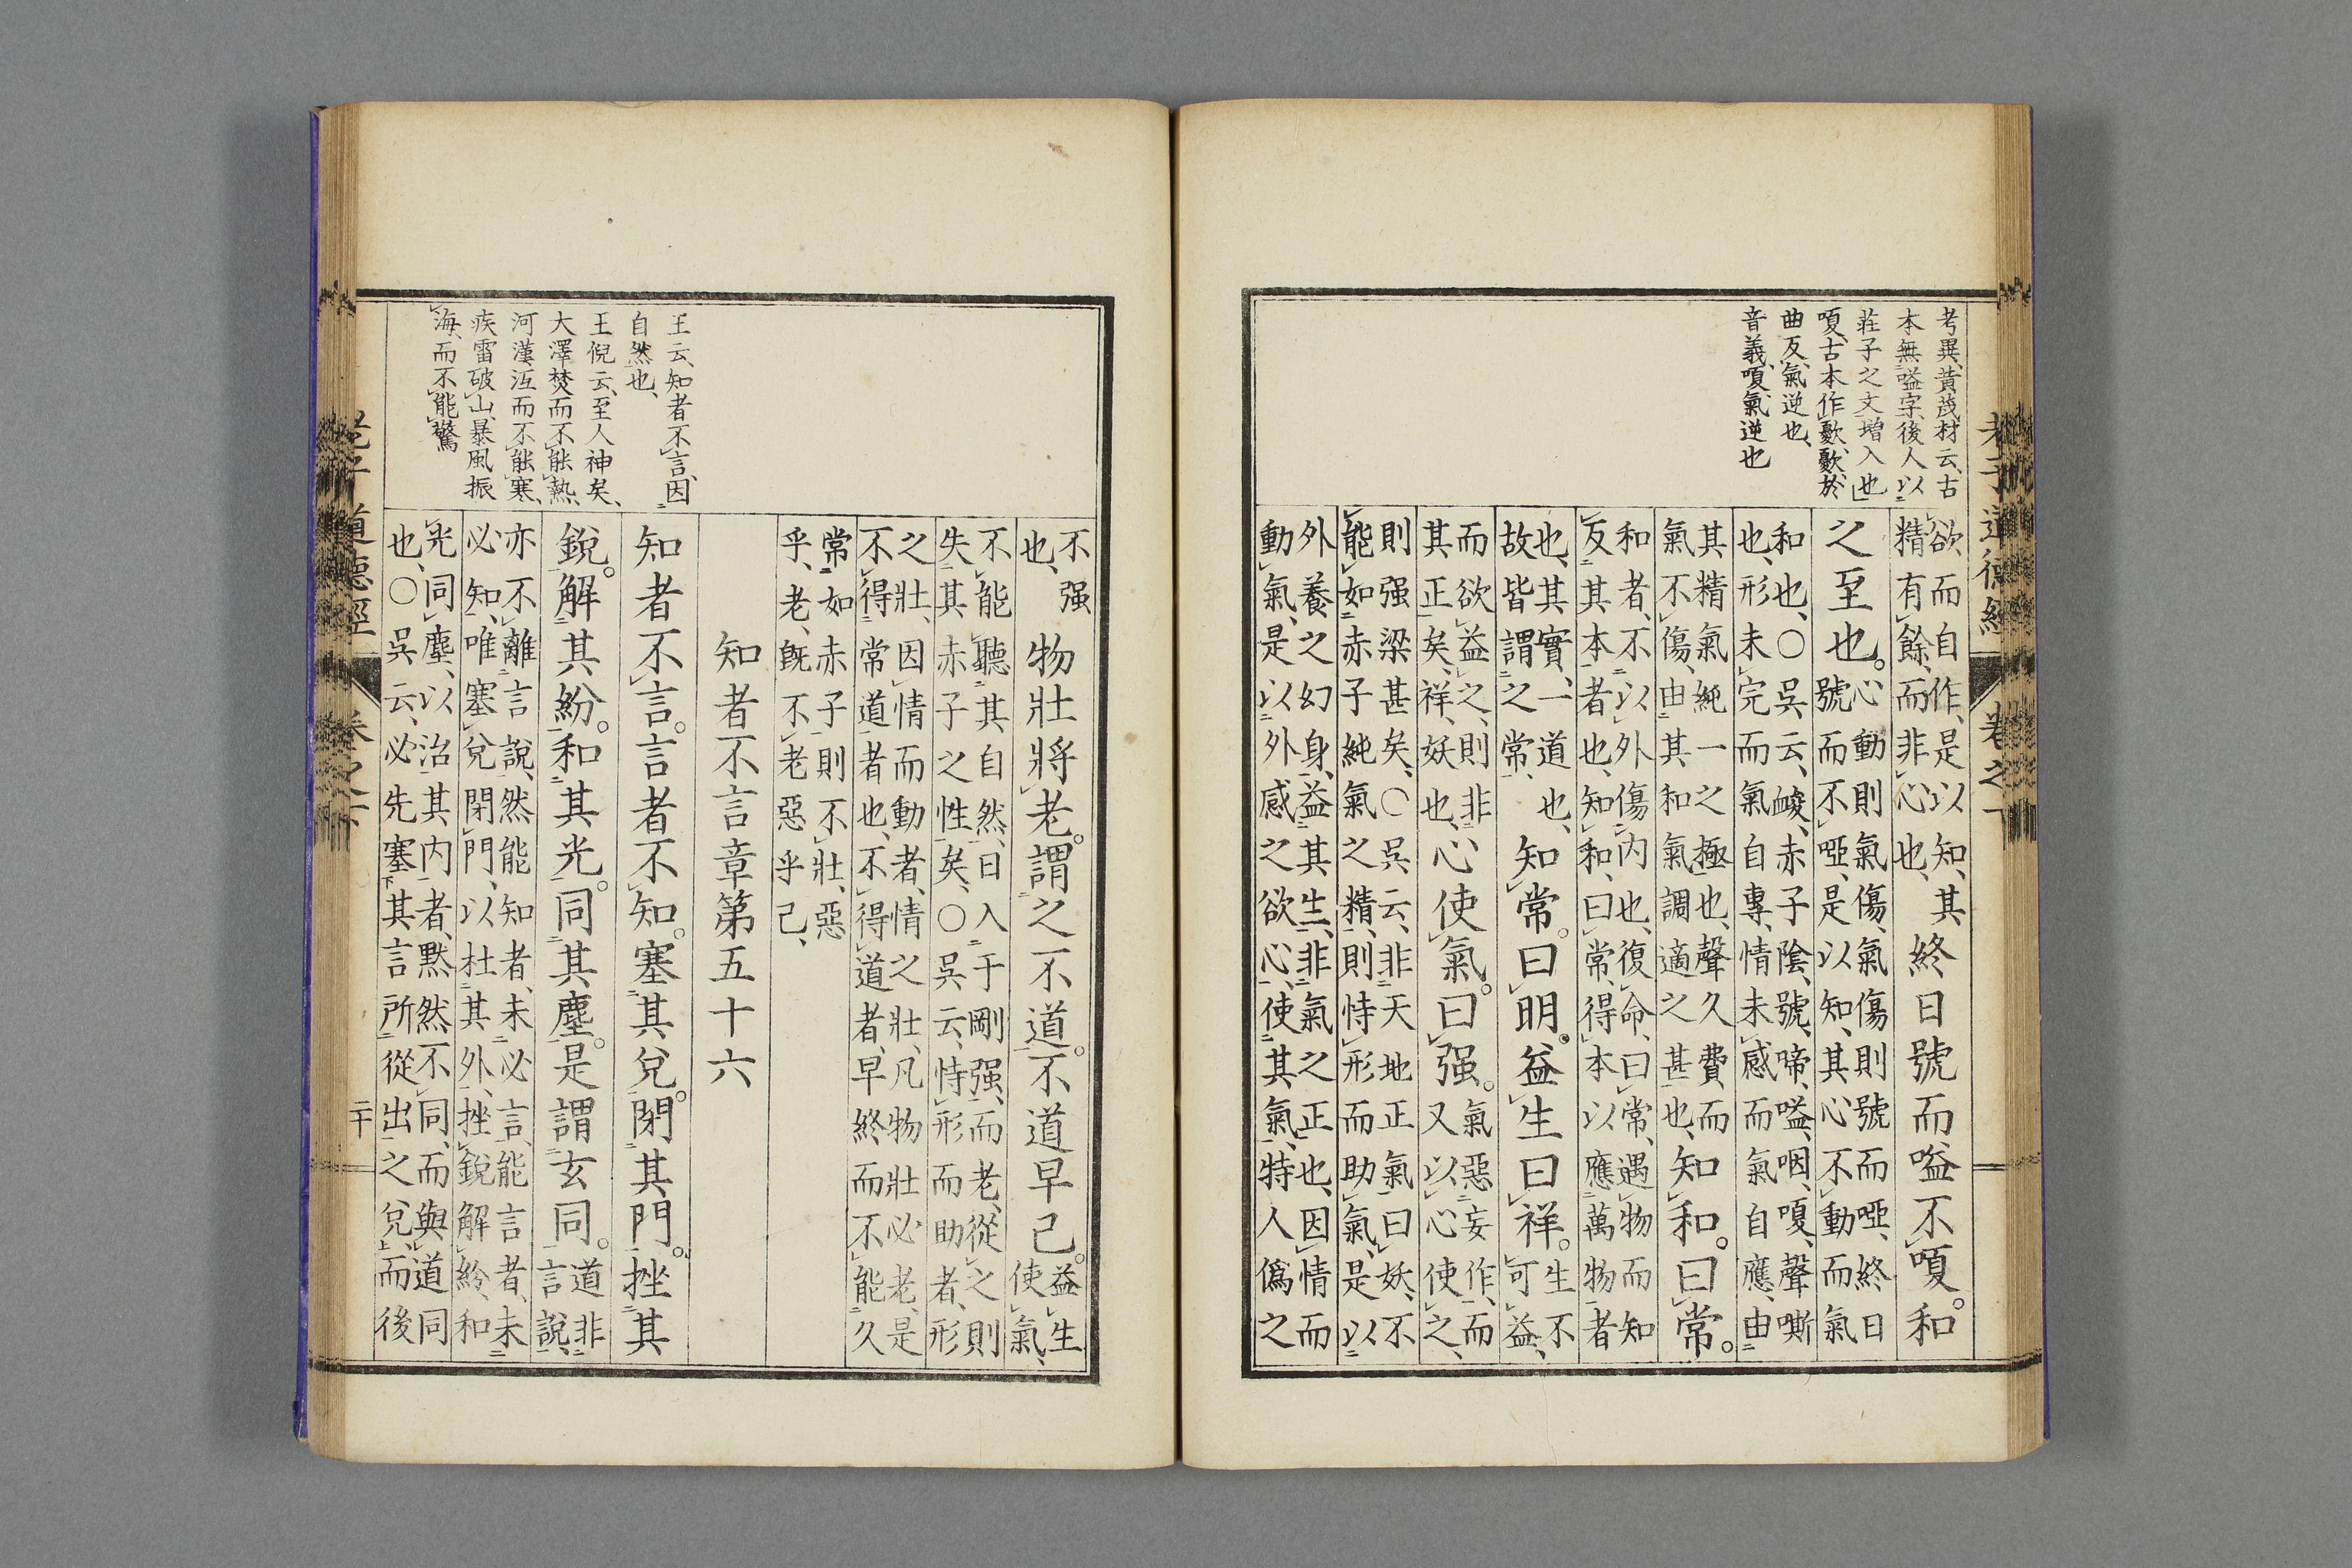 老子道德經 卷之下
考異、黃茂材云、古
本無嗌字、後人以
莊子之文増入也
嗄、古本作歠、歠、於
曲反、氣逆也、
音義、嗄、氣逆也
欲而自作、是以知、其
精有餘、而非心也、
終日號而嗌不嗄。和
之至也。
心動則氣傷、氣傷則號而啞、終日
號而不啞、是以知、其心不動而氣
和也、○吳云、峻、赤子陰、號、啼、嗌、咽、嗄、聲嘶
也、形未完而氣自專、情未感而氣自應、由
其精氣純一之極也、聲久費而
氣不傷、由其和氣調適之甚也、
知和。曰常。
和者、不以外傷内也、復命、曰常、遇物而知
反其本者也、知和、曰常、得本以應萬物者
也、其實、一道也、
故皆謂之常、
知常。曰明。益生曰祥。
生不
可益、
而欲益之、則非
其正矣、祥、妖也、
心使氣。曰强。
氣惡妄作、而
又以心使之、
則强梁甚矣、○吳云、非天地正氣曰妖、不
能如赤子純氣之精、則恃形而助氣、是以
外養之幻身、益其生、非氣之正也、因情而
動氣、是以外感之欲心、使其氣、特人僞之
王云、知者不言、因
自然也、
王倪云、至人神矣、
大澤焚而不能熱、
河漢沍而不能寒、
疾雷破山、暴風振
海、而不能驚
不强
也、
物壯將老。謂之不道。不道早已。
益生
使氣、
不能聽其自然、日入于剛强、而老、從之則
失其赤子之性矣、○吳云、恃形而助者、形
之壯、因情而動者、情之壯、凡物壯必老、是
不得常道者也、不得道者、早終而不能久
常如赤子則不壯、惡
乎、老、旣不老惡乎已、
知者不言章第五十六
知者不言。言者不知。塞其兌。閉其門。挫其
銳。解其紛。和其光。同其塵。是謂玄同。
道非
言說、
亦不離言說、然能知者、未必言、能言者、未
必知、唯塞兌閉門、以杜其外、挫銳解紛、和
光同塵、以治其内者、黙然、不同、而與道同
也、○吳云、必先塞其言所從出之兌、而後
老子道德經 卷之下 二十